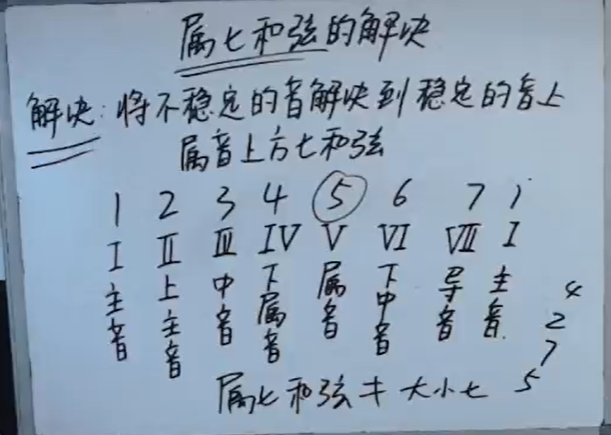 属七和弦的解决
解决:将不稳定的音解决到稳定的音上
属音上方七和弦
1 2 3 4 5 6 7 i
I II III IV V VI VII I
主音 上主音 中音 下属音 属音 下中音 导音 主音
4
2
7
5
属七和弦キ大小七